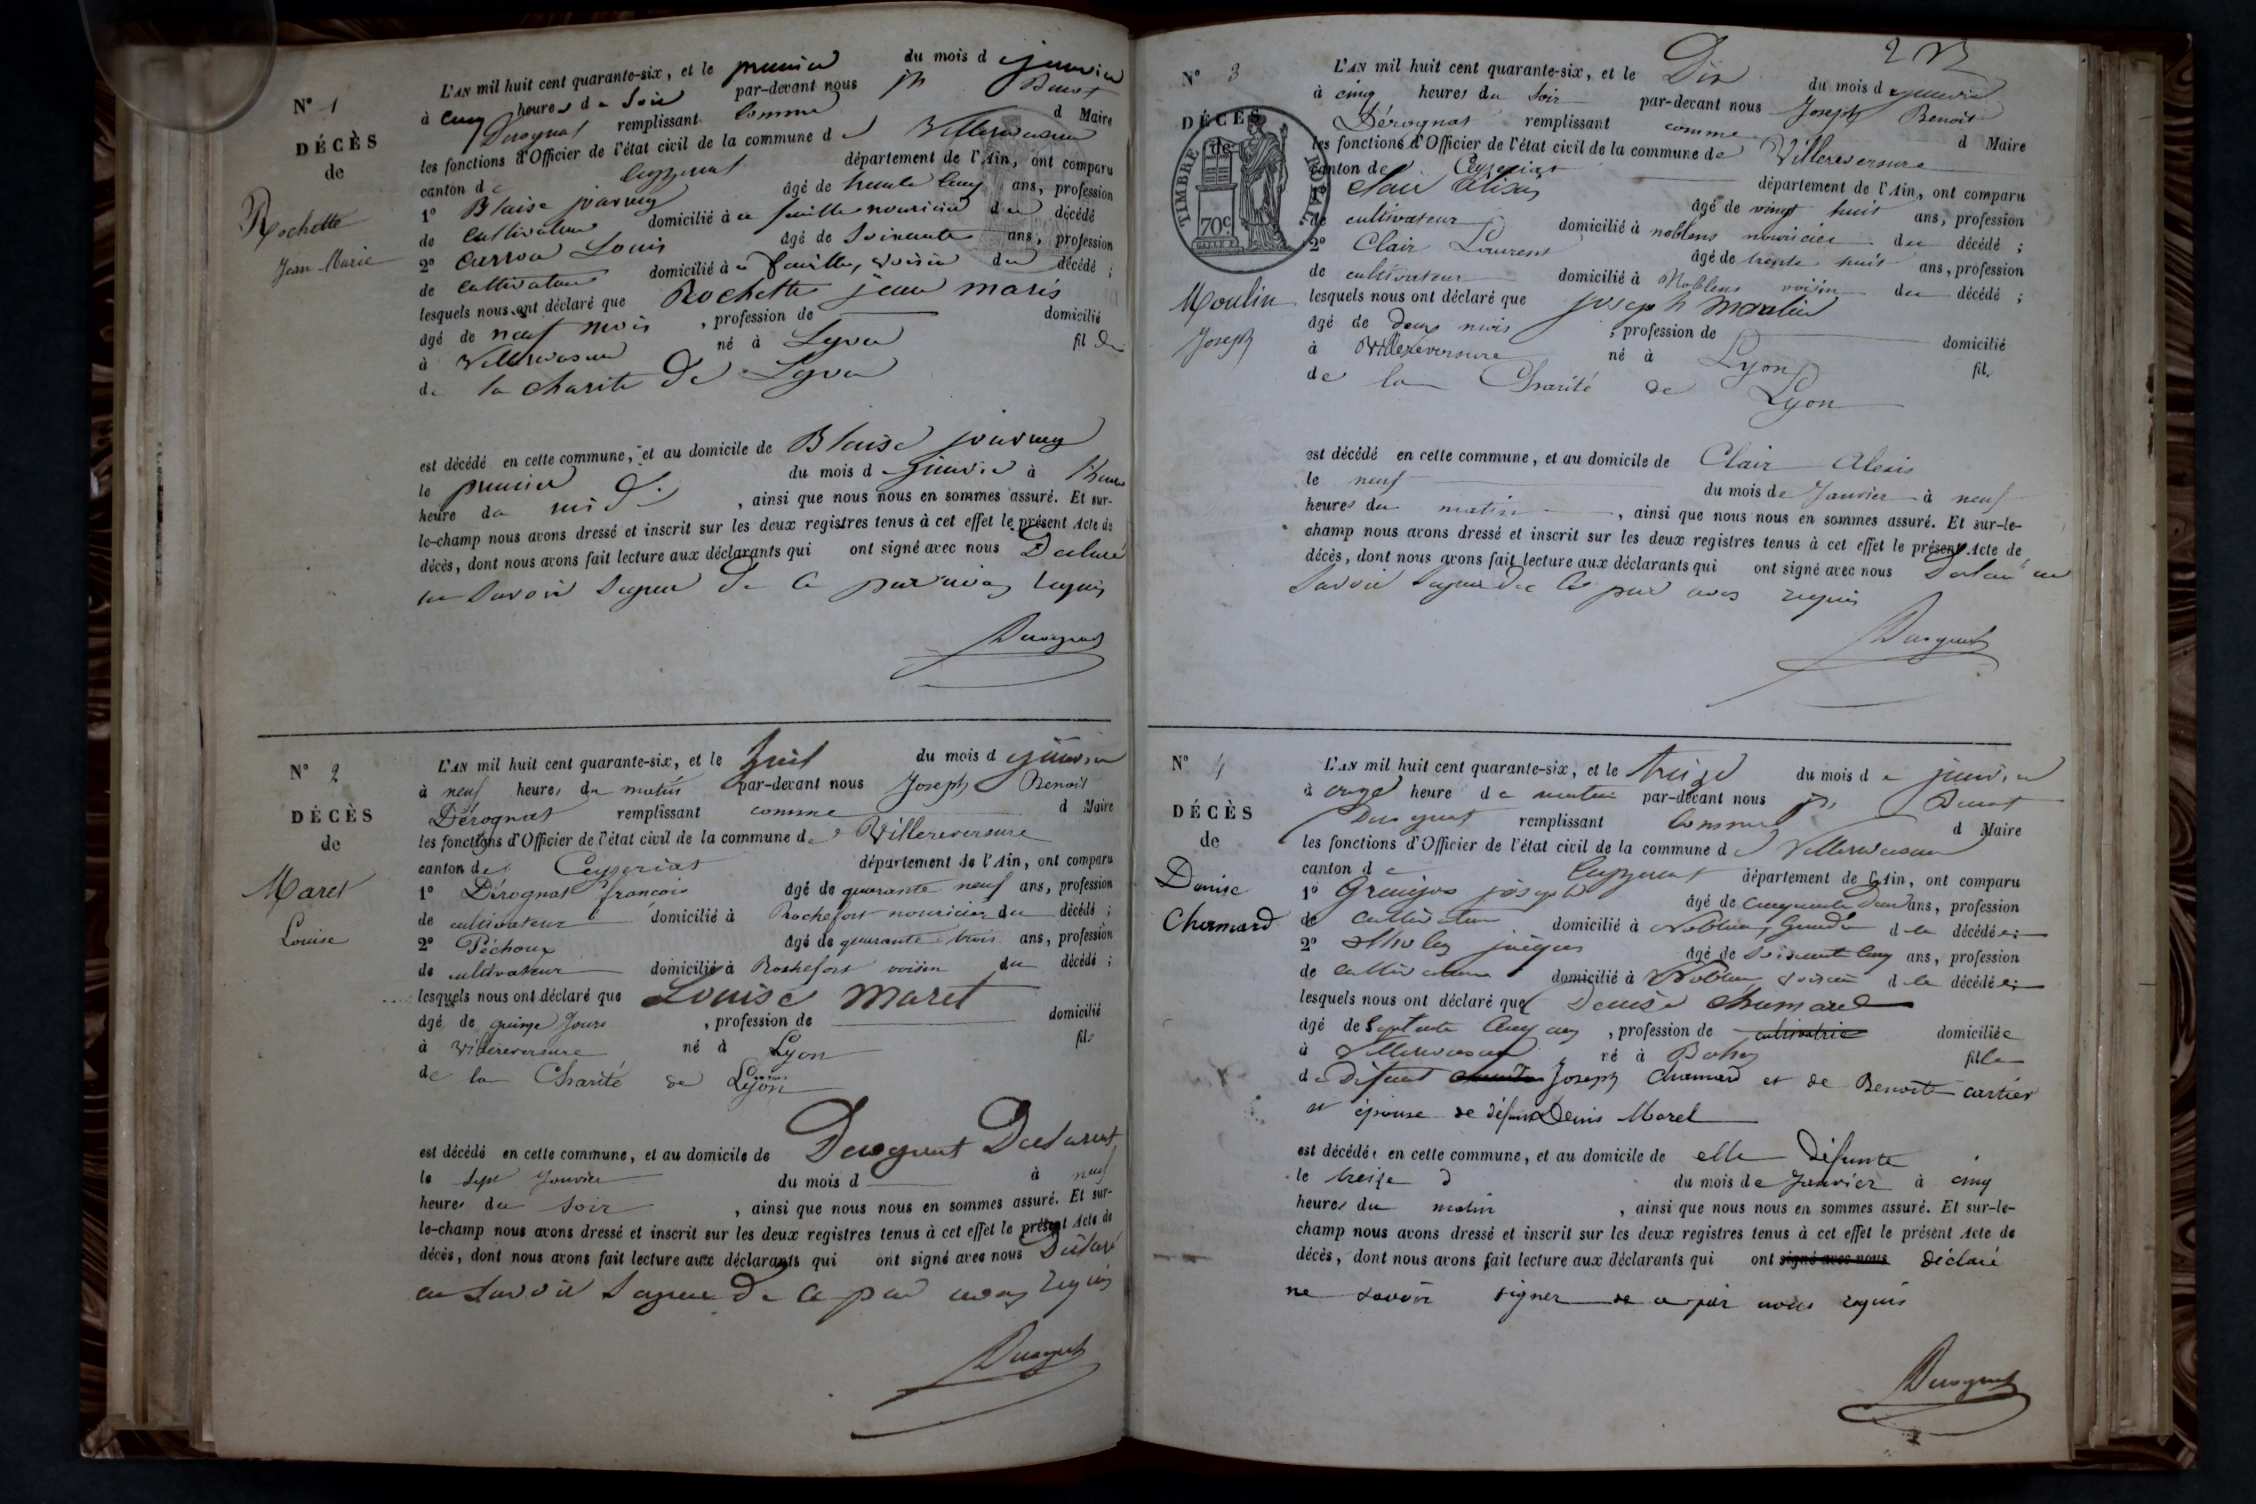 N° 1
DÉCÈS
de
Rochette
Jean Marie
L'AN mil huit cent quarante-six, et le premier du mois d janvier
à cinq heures du soir par-devant nous jh Benoit
Derognat remplissant comme d Maire
les fonctions d'Officier de l'état civil de la commune de Villereversure
canton de Ceyzeriat département de l'Ain, ont comparu
1° Blaise âgé de trente cinq ans, profession
de cultivateur domicilié à nouricier du décédé
2° Louis âgé de soixante ans, profession
de cultivateur domicilié à voisin du décédé ;
lesquels nous ont déclaré que Rochette jean marie
âgé de neuf mois , profession de domicilié
à Villereversure né à Lyon fil de
de la charité de Lyon
est décédé en cette commune, et au domicile de Blaise
le premier du mois d janvier à
heure du midi , ainsi que nous nous en sommes assuré. Et sur-
le-champ nous avons dressé et inscrit sur les deux registres tenus à cet effet le présent Acte de
décès, dont nous avons fait lecture aux déclarants qui ont signé avec nous Déclaré
ne savoir signer de ce par nous requis
Derognat
N° 2
DÉCÈS
de
Maret
Louise
L'AN mil huit cent quarante-six, et le huit du mois d janvier
à neuf heures du matin par-devant nous Joseph Benoit
Dérognat remplissant comme d Maire
les fonctions d'Officier de l'état civil de la commune de Villereversure
canton de Ceyzeriat département de l'Ain, ont comparu
1° Dérognat françois âgé de quarante neuf ans, profession
de cultivateur domicilié à Rochefort nouricier du décédé ;
2° Péchoux âgé de quarante trois ans, profession
de cultivateur domicilié à Rochefort voisin du décédé ;
lesquels nous ont déclaré que Louise Maret
âgé de quinze jours , profession de domicilié
à Villereversure né à Lyon fil
de la Charité de Lyon
est décédé en cette commune, et au domicile de Derognat
le sept Janvier du mois d à neuf
heures du soir , ainsi que nous nous en sommes assuré. Et sur-
le-champ nous avons dressé et inscrit sur les deux registres tenus à cet effet le présent Acte de
décès, dont nous avons fait lecture aux déclarants qui ont signé avec nous Déclaré
ne savoir signer de ce par nous requis
Derognat
2
N° 3
DÉCÈS
de
TIMBRE ROYAL
70c
Moulin
Joseph
L'AN mil huit cent quarante-six, et le Dix du mois d janvier
à cinq heures du soir par-devant nous Joseph Benoit
Dérognat remplissant comme d Maire
les fonctions d'Officier de l'état civil de la commune de Villereversure
canton de Ceyzeriat département de l'Ain, ont comparu
1° Clair Alexis âgé de vingt huit ans, profession
de cultivateur domicilié à noblens nouricier du décédé ;
2° Clair Laurent âgé de trente huit ans, profession
de cultivateur domicilié à Noblens voisin du décédé ;
lesquels nous ont déclaré que joseph moulin
âgé de deux mois , profession de domicilié
à Villereversure né à Lyon fil
de la Charité de Lyon
est décédé en cette commune, et au domicile de Clair Alexis
le neuf du mois de Janvier à neuf
heures du matin , ainsi que nous nous en sommes assuré. Et sur-le-
champ nous avons dressé et inscrit sur les deux registres tenus à cet effet le présent Acte de
décès, dont nous avons fait lecture aux déclarants qui ont signé avec nous Déclaré ne
savoir signer de ce par nous requis
Derognat
N° 4
DÉCÈS
de
Denise
Chamard
L'AN mil huit cent quarante-six, et le treize du mois de janvier
à onze heure de matin par-devant nous jh Benoit
Derognat remplissant comme d Maire
les fonctions d'Officier de l'état civil de la commune de Villereversure
canton de Ceyzeriat département de l'Ain, ont comparu
1° joseph âgé de cinquante Deux ans, profession
de cultivateur domicilié à Noblens Gendre de la décédée ;
2° jacques âgé de soixante cinq ans, profession
de cultivateur domicilié à Noblens voisin de la décédée ;
lesquels nous ont déclaré que Denise chamard
âgé de Septante Cinq ans , profession de cultivatrice domiciliée
à Villereversure né à Bohas fille
de Défunt Joseph Chamard et de Benoite cartier
et épouse de défunt Denis Morel
est décédée en cette commune, et au domicile de elle Défunte
le treize d du mois de Janvier à cinq
heures du matin , ainsi que nous nous en sommes assuré. Et sur-le-
champ nous avons dressé et inscrit sur les deux registres tenus à cet effet le présent Acte de
décès, dont nous avons fait lecture aux déclarants qui ont signé avec nous déclaré
ne savoir signer de ce par nous requis
Derognat